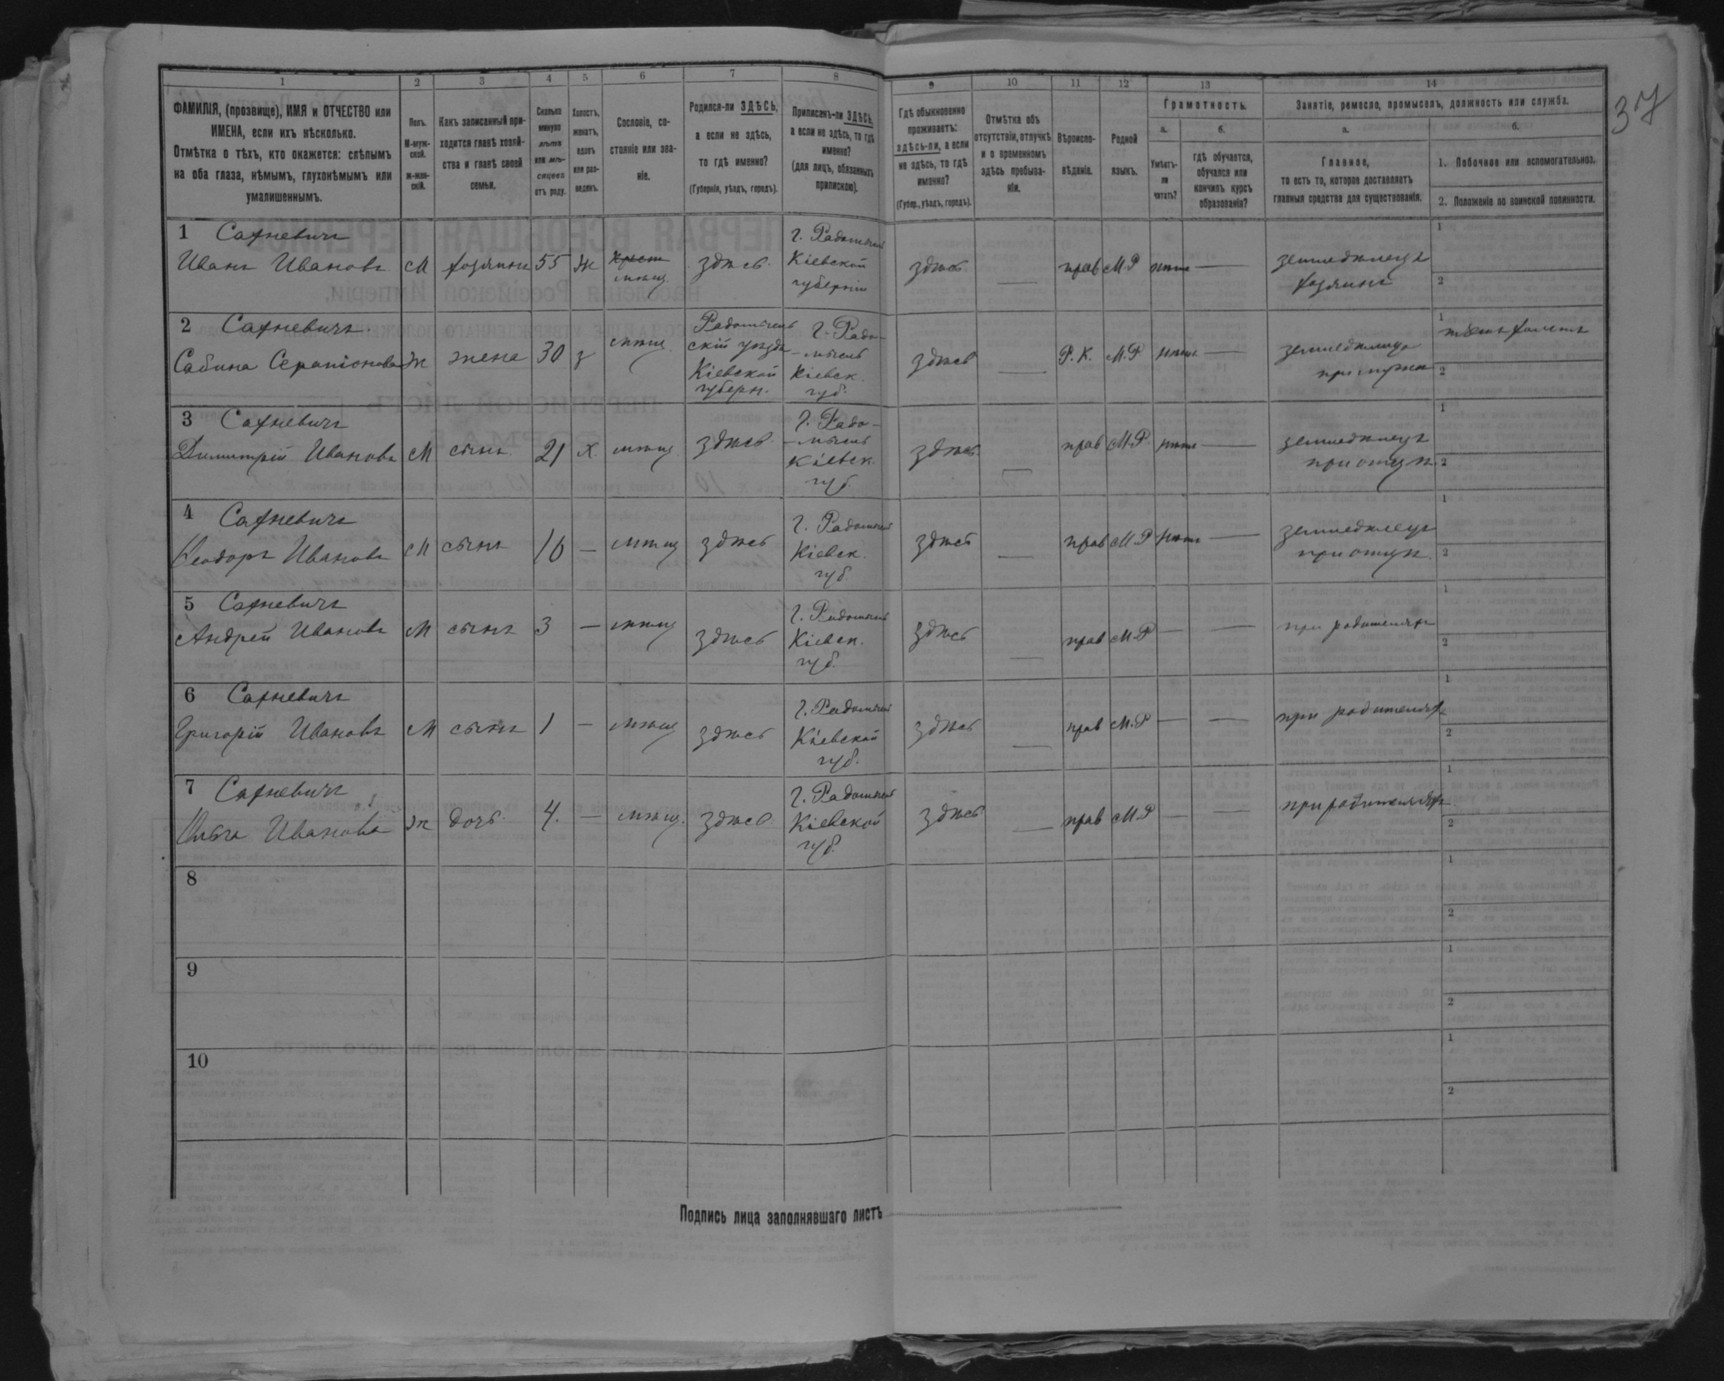 37
1
2
3
4
5
6
7
8
9
10
11
12
13
14
ФАМИЛІЯ, (прозвище), ИМЯ и ОТЧЕСТВО или
ИМЕНА, если ихъ нѣсколько.
Отмѣтка о тѣхъ, кто окажется: слѣпымъ
на оба глаза, нѣмымъ, глухонѣмымъ или
умалишеннымъ.
Полъ.
М-муж-
ской.
ж-жен-
скій.
Какъ записанный при-
ходится главѣ хозяй-
ства и главѣ своей
семьи.
Сколько
минуло
лѣтъ
или мѣ-
сяцевъ
отъ роду.
Холостъ,
женатъ,
вдовъ
или раз-
веденъ.
Сословіе, со-
стояніе или зва-
ніе.
Родился-ли ЗДѢСЬ,
а если не здѣсь,
то гдѣ именно?
(Губернія, уѣздъ, городъ).
Приписанъ-ли ЗДѢСЬ,
а если не здѣсь, то гдѣ
именно?
(для лицъ, обязанныхъ
припиской).
Гдѣ обыкновенно
проживаетъ:
здѣсь-ли, а если
не здѣсь, то гдѣ
именно?
(Губер., уѣздъ, городъ).
Отмѣтка объ
отсутствіи, отлучкѣ
и о временномъ
здѣсь пребыва-
ніи.
Вѣроиспо-
вѣданіе.
Родной
языкъ.
Грамотность.
а.
б.
Умѣетъ-
ли
читать?
гдѣ обучается,
обучался или
кончилъ курсъ
образованія?
Занятіе, ремесло, промыселъ, должность или служба.
а.
б.
Главное,
то есть то, которое доставляетъ
главныя средства для существованія.
1. Побочное или вспомогательное.
2. Положеніе по воинской повинности.
1 Сахневичъ
Иванъ Ивановъ М хозяинъ 55 ж
мѣщ здѣсь
г. Радомысль
Кіевской
губерніи
здѣсь — прав М.Р нѣтъ —
земледѣлецъ
хозяинъ
1
2
2 Сахневичъ
Сабина Серапіонова ж жена 30 з мѣщ.
Радомысль
скій уѣздъ
Кіевской
губерн.
г. Радо-
мысль
Кіевск.
губ.
здѣсь — Р.К. М.Р нѣтъ —
при мужѣ
1
2
3 Сахневичъ
Димитрій Ивановъ М сынъ 21 х мѣщ здѣсь
г. Радо-
мысль
Кіевск.
губ.
здѣсь — прав М.Р. нѣтъ —
земледѣлецъ
при отцѣ
1
2
4 Сахневичъ
Ѳеодоръ Ивановъ М сынъ 10 — мѣщ здѣсь
г. Радомысль
Кіевск.
губ.
здѣсь — прав М.Р нѣтъ —
земледѣлецъ
при отцѣ.
1
2
5 Сахневичъ
Андрей Ивановъ М сынъ 3 — мѣщ здѣсь
г. Радомысль
Кіевск.
губ.
здѣсь — прав М.Р — —
при родителяхъ
1
2
6 Сахневичъ
Григорій Ивановъ М сынъ 1 — мѣщ здѣсь
г. Радомысль
Кіевской
губ.
здѣсь — прав М.Р — —
при родителяхъ
1
2
7 Сахневичъ
Ольга Иванова ж дочь 4. — мѣщ. здѣсь
г. Радомысль
Кіевской
губ.
здѣсь — прав М.Р — —
при родителяхъ
1
2
8
1
2
9
1
2
10
1
2
Подпись лица заполнявшаго листъ